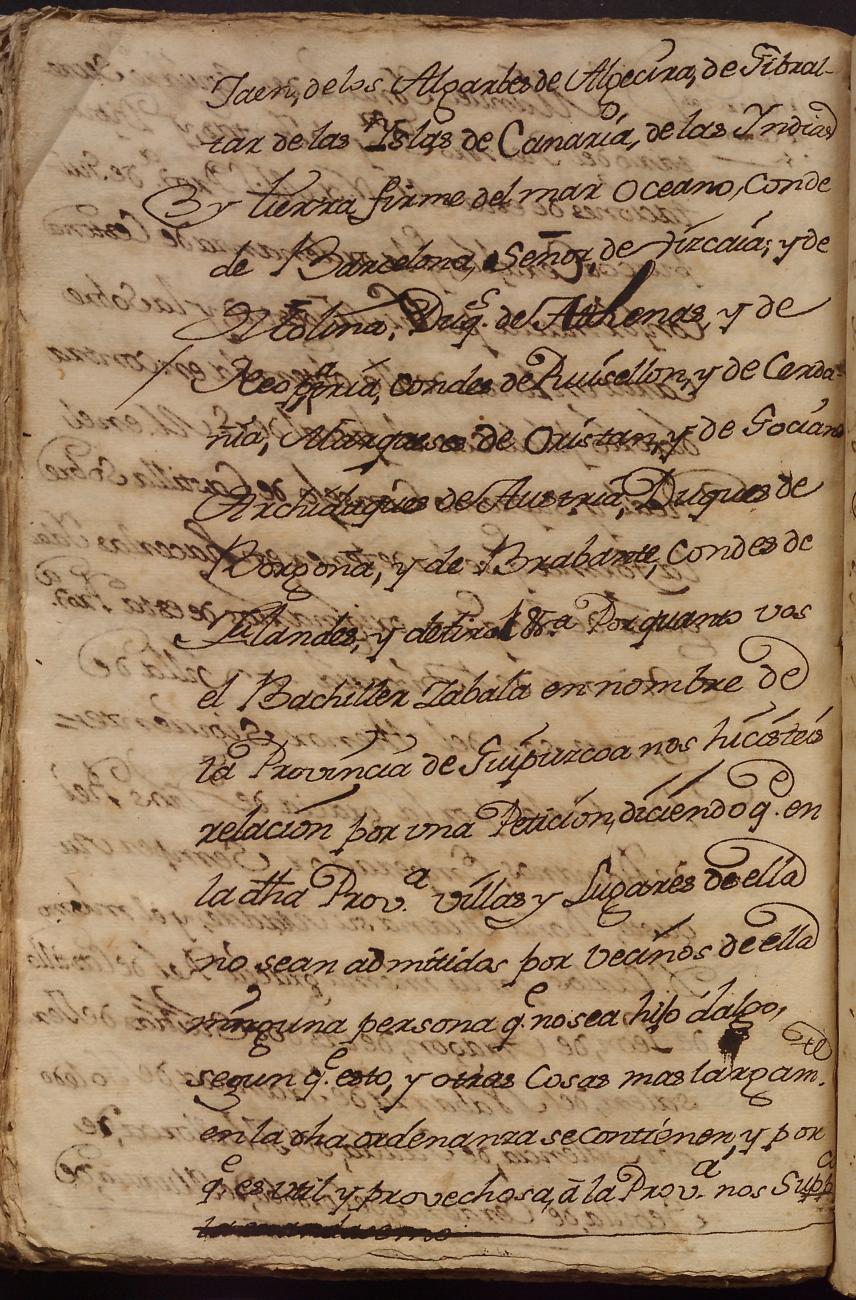 Jaen, de los Algarbes de Algecira, de Gibral-
tar de las Yslas de Canaria, de las Indias
y tierra firme del mar oceano, Conde
de Barcelona, Señor de Vizcaia; y de
Molina, Duq.s de Athenas, y de
Neopatria, Condes de Ruisellon, y de Cerda-
nia, Marqueses de Oristan, y de Gociano
Archiduques de Austria, Duques de
Borgoña, y de Brabante, Condes de
Flandes, y de tirol &.a Por quanto vos
el Bachiller Zabala en nombre de
la Provincia de Guipuzcoa nos hicisteis
relación por vna Petición, diciendo q.e en
la dha Prov.a villas y Lugares de ella
no sean admitidos por vecinos de ella
ninguna persona q.e no sea hijo dalgo,
segun q.e esto, y otras Cosas mas largam.te
en la dha ordenanza se contienen, y por
q.e es vtil y provechosa, à la Prov.a nos Supp.ca